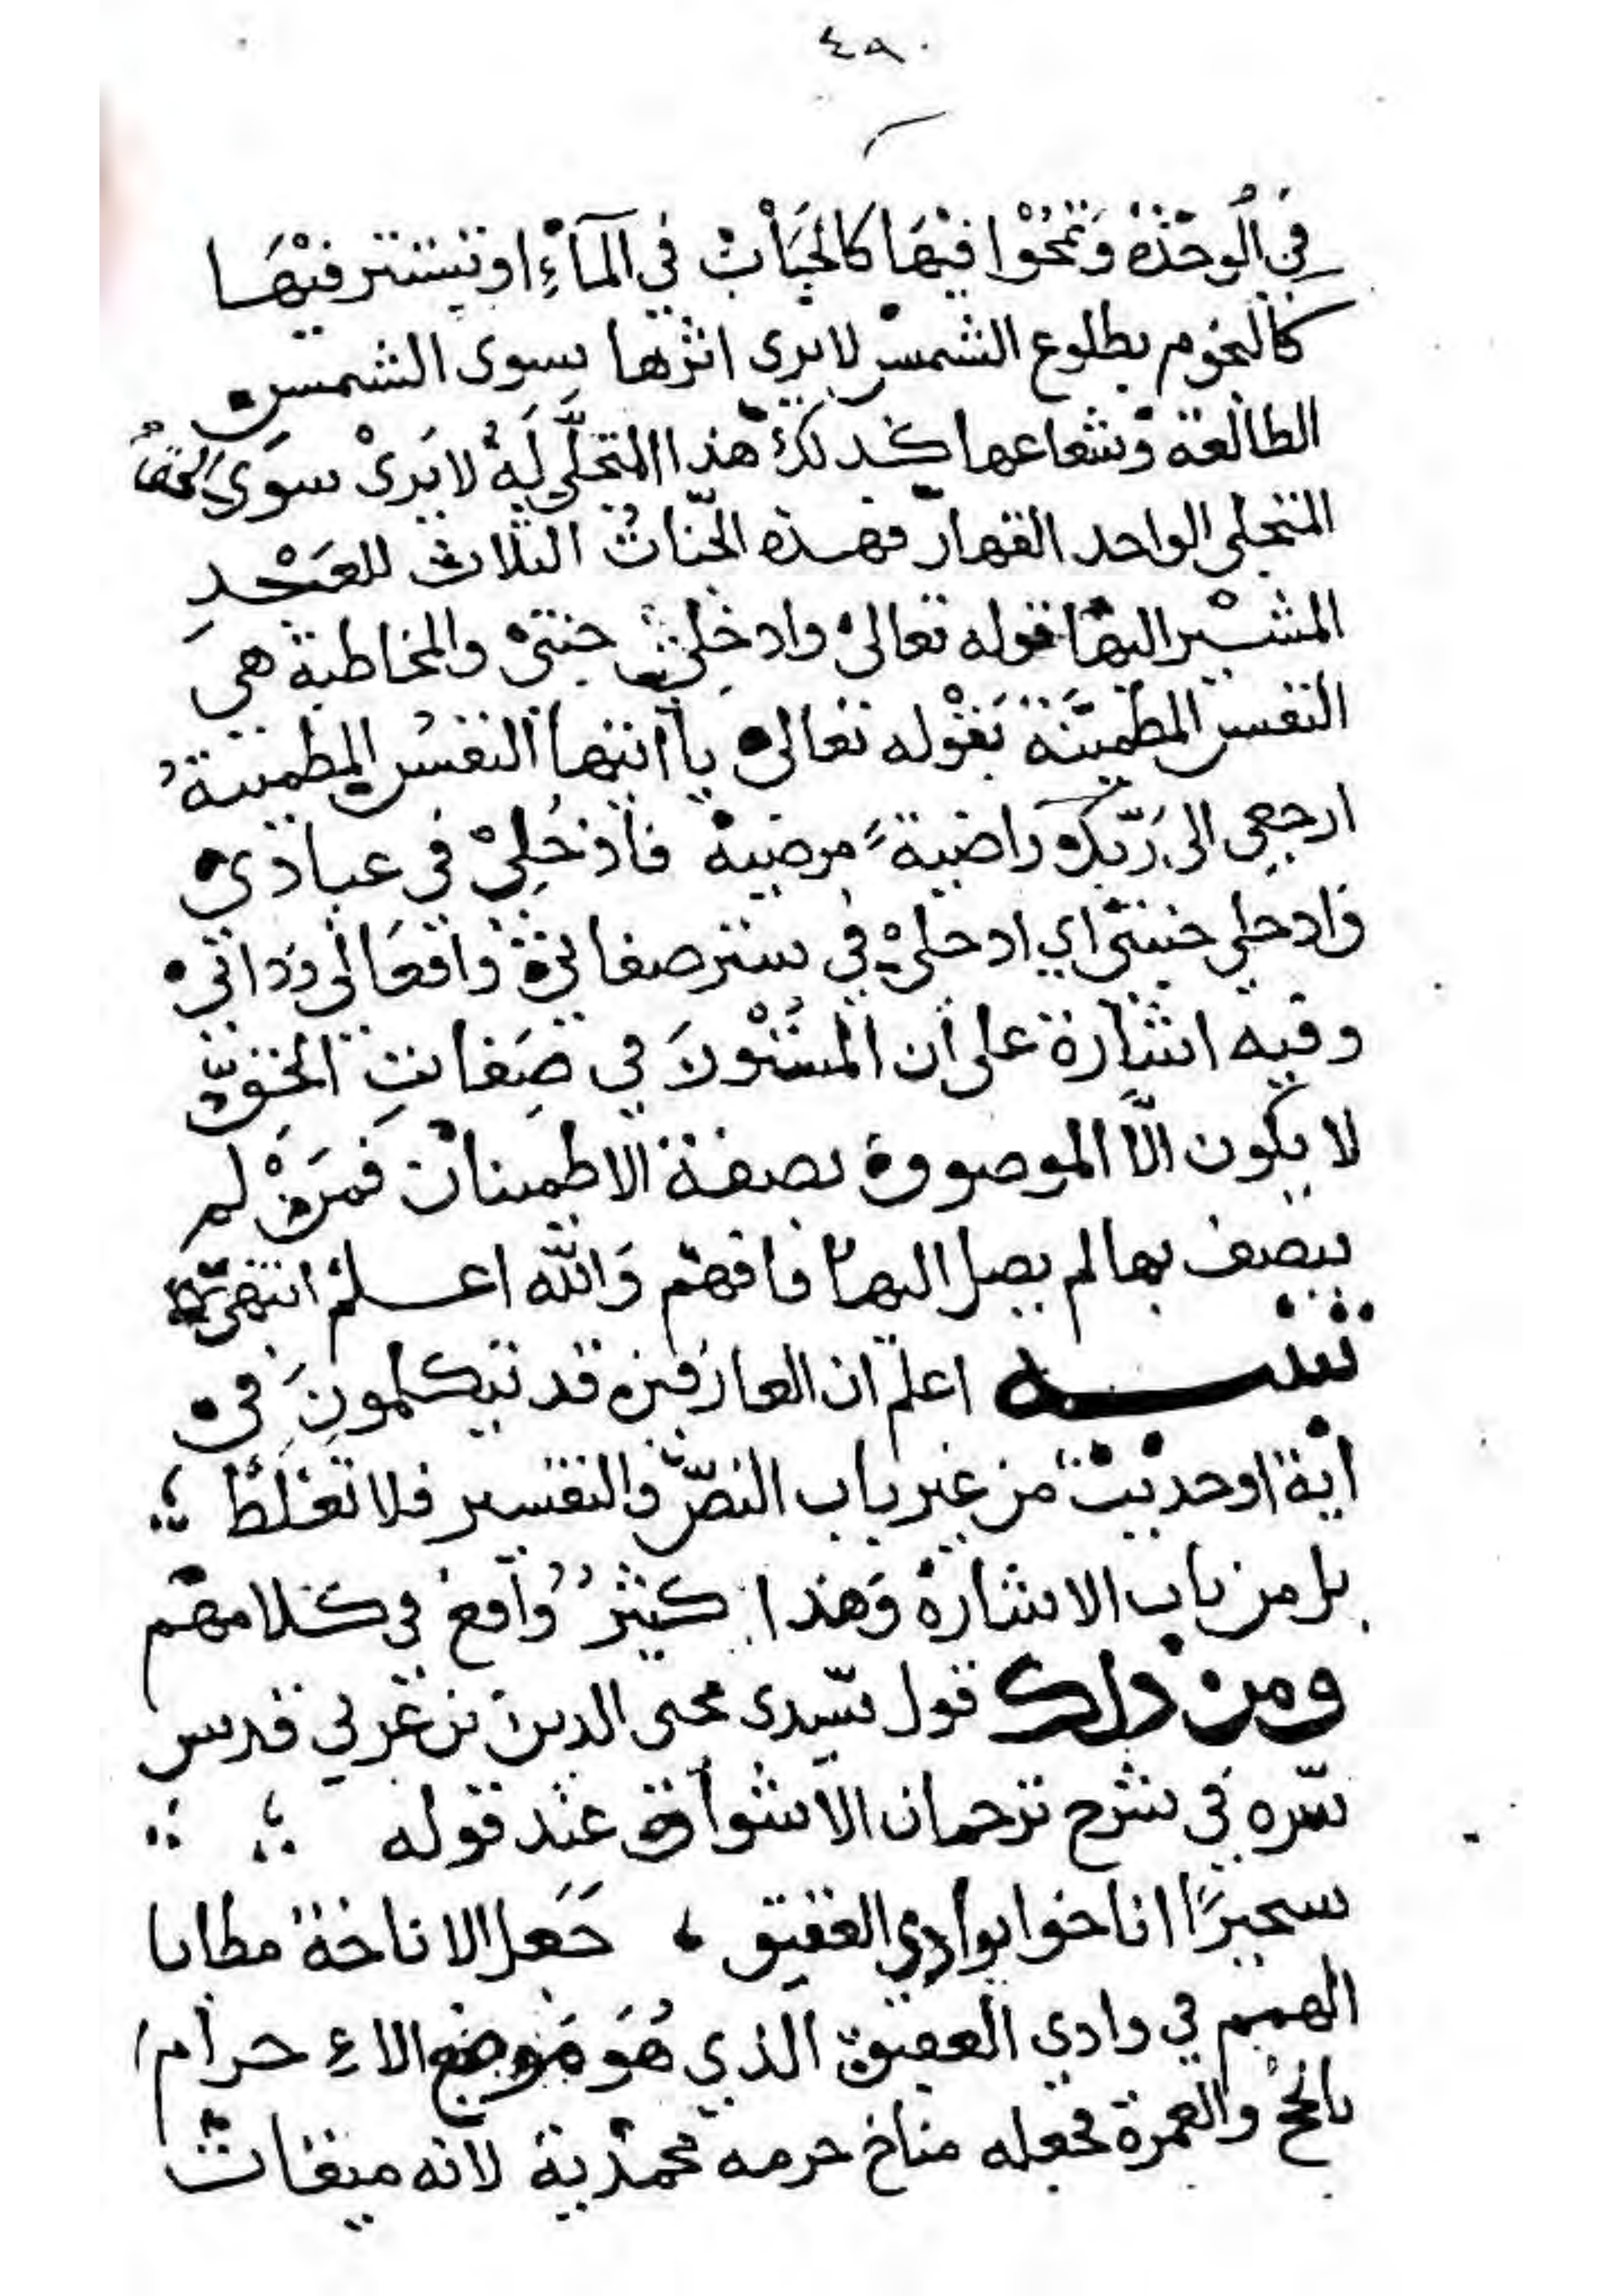 ٤٩٠
في الوحدة وتمحوا فيها كالحباب في المآء او تيستتر فيها
كالنجوم بطلوع الشمس لا يرى اثرها سوى الشمس
الطالعة وشعاعها كذلك هذا المتجلّي له لا يرى سوى الحق
المتجلي الواحد القهار فهذه الجنّات الثلاث للعبد
المشير اليها قوله تعالى وادخلي جنتي والمخاطبة هي
النفس المطمينّة بقوله تعالى يا ايتها النفس المطمينة
ارجعي الى ربّك راضية مرضية فادخلي في عبادي
وادخلي جنتي اي ادخلي في ستر صفاتي وافعالي وذاتي
وفيه اشارة على ان المستور في صفات الحق
لا يكون الّا الموصوفة بصفة الاطمينان فمن لم
يتصف بها لم يصل اليها فافهم والله اعلم انتهى
تنبيه اعلم ان العارفين قد يتكلمون في
اية او حديث من غير باب النصّ والتفسير فلا تغلط
بل من باب الاشارة وهذا كثير واقع في كلامهم
ومن ذلك قول سيدي محي الدين بن عربي قدس
سّره في شرح ترجمان الاشواق عند قوله
سحيرًا اناخوا بوادي العقيق ، جعل الاناخة مطايا
الهمم في وادي العقيق الذي هو موضع الاءحرام
بالحج والعمرة فجعله مناخ حرمه محمدية لانه ميقات